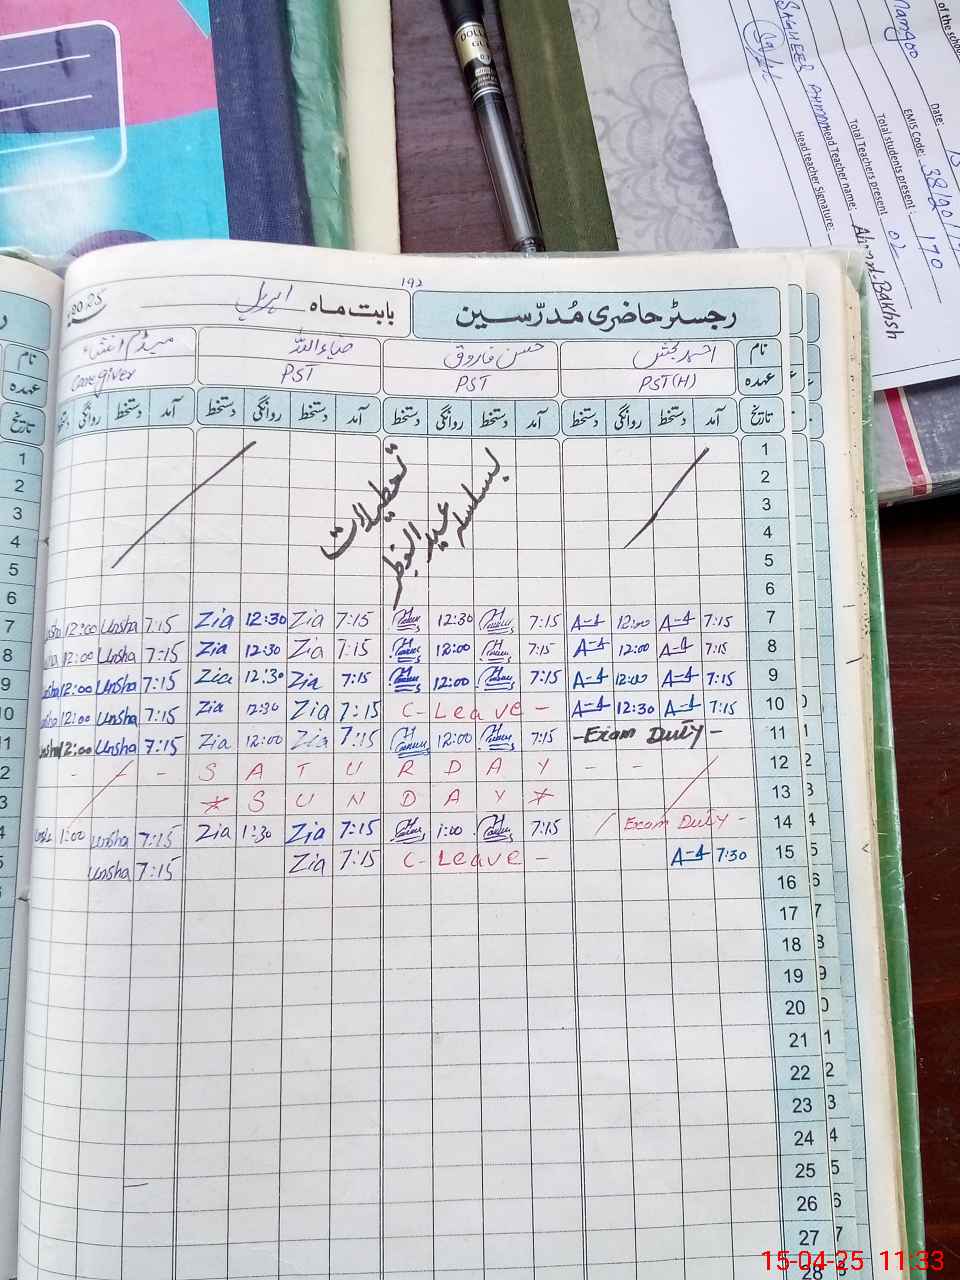 of the school
mangoo
Date: 15
EMIS Code: 38120
Total students present: 170
Total Teachers present 02
Head Teacher name: Ahmad Bakhsh
Head teacher Signature:
SAGHEER AHMAD
DOLLAR
192
رجسٹر حاضری مُدرّسین بابت ماہ اپریل 2025
نام احمد بخش حسن فاروق ضیاءاللہ میڈم
عہدہ PST(H) PST PST Care giver
تاریخ آمد دستخط روانگی دستخط آمد دستخط روانگی دستخط آمد دستخط روانگی دستخط آمد دستخط روانگی دستخط
تاریخ
نام
عہدہ
1
2
3
4
5
6
تعطیلات بسلسلہ عید الفطر
12:00 Unsha 7:15 Zia 12:30 Zia 7:15 12:30 7:15 12:00 7:15 7
12:00 Unsha 7:15 Zia 12:30 Zia 7:15 12:00 7:15 12:00 7:15 8
12:00 Unsha 7:15 Zia 12:30 Zia 7:15 12:00 7:15 12:00 7:15 9
12:00 Unsha 7:15 Zia 12:30 Zia 7:15 C- Leave - 12:30 7:15 10
12:00 Unsha 7:15 Zia 12:00 Zia 7:15 12:00 7:15 -Exam Duty- 11
- - - S A T U R D A Y - - 12
* S U N D A Y * 13
1:00 Unsha 7:15 Zia 1:30 Zia 7:15 1:00 7:15 Exam Duty - 14
Unsha 7:15 Zia 7:15 C- Leave - 7:30 15
16
17
18
19
20
21
22
23
24
25
26
27
28
15-04-25 11:33